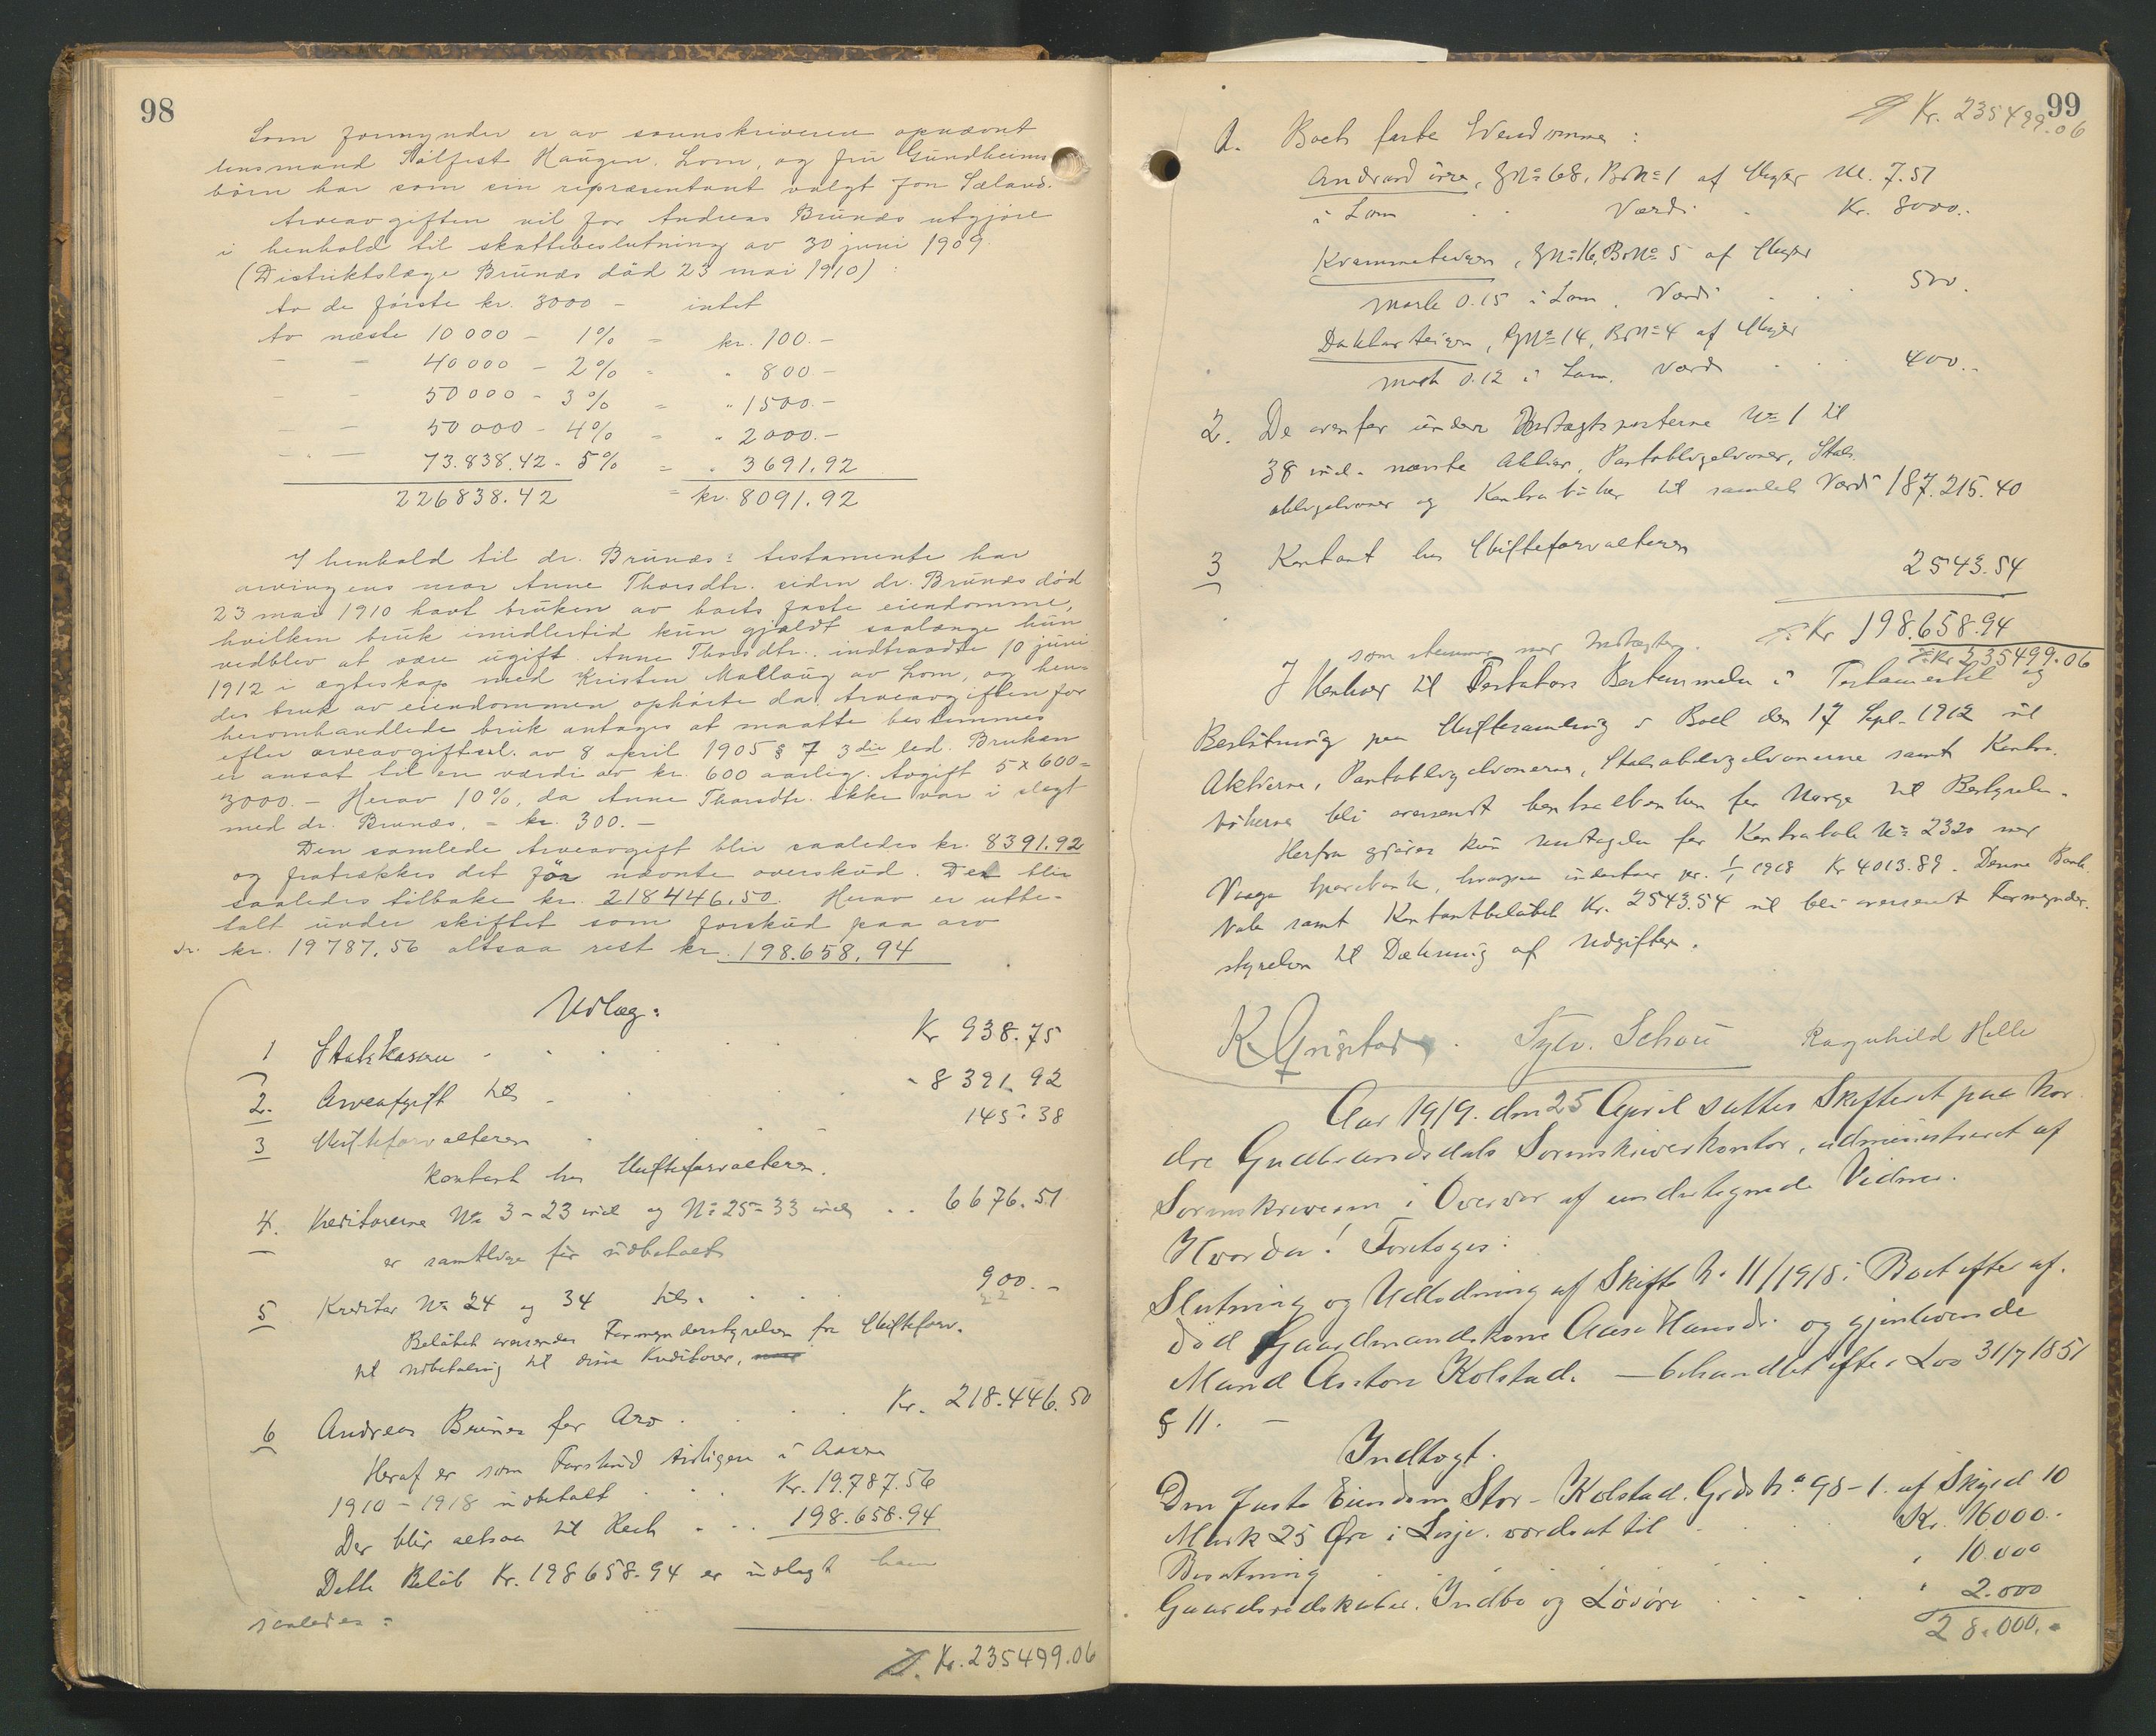 98
Som formynder er av sorenskriveren opnævnt
lensmand Haugen, Lom, og fru Gundheims
børn har som sin repræsentant valgt Jon Sæland.
Arveavgiften vil for Andreas Brunæs utgjøre
i henhold til skattebeslutning av 30 juni 1909
(Distriktslæge Brunæs død 23 mai 1910) :
av de første kr. 3000 – intet
av næste 10 000 – 1% = kr. 100.–
– – 40 000 – 2% = " 800.–
– – 50 000 – 3% = " 1500.–
– – 50 000 – 4% = " 2000.–
– – 73.838.42 – 5% = " 3691.92
226838.42 = kr. 8091.92
I henhold til dr. Brunæs's testamente har
arvingens mor Anne Thorsdtr. siden dr. Brunæs død
23 mai 1910 havt bruken av boets faste eiendomme,
hvilken bruk imidlertid kun gjaldt saalænge hun
vedblev at være ugift. Anne Thorsdtr. indtraadte 10 juni
1912 i ægteskap med Kristen Mallaug av Lom, og hen-
des bruk av eiendommen ophørte da. Arveavgiften for
heromhandlede bruk antages at maatte bestemmes
efter arveavgiftsl. av 8 april 1905 § 7 3die led. Bruken
er ansat til en værdi av kr. 600 aarlig. Avgift 5 x 600 =
3000.– Herav 10%, da Anne Thorsdtr. ikke var i slegt
med dr. Brunæs, = kr. 300.–
Den samlede Arveavgift blir saaledes kr. 8391.92
og fratrækkes det før nævnte overskud. Det blir
saaledes tilbake kr. 218446.50. Herav er utbe-
talt under skiftet som forskud paa arv
kr. 19787.56 altsaa rest kr. 198.658.94
Udlæg:
1 Statskassen . . . . Kr 938.75
2. Arveafgift . . . " 8391.92
3 Skifteforvalteren . . . 145.38
kontant hos Skifteforvalteren.
4. Kreditorerne No 3–23 incl og No 25–33 incl . . 6676.51
er samtlige før udbetalt
5 Kreditor No 24 og 34 . . 900.–
22
Beløbet oversendes Formynderstyrelsen fra Skifteforv.
til udbetaling til disse Kreditorer,
6 Andreas Brunæs for Arv . . . . Kr. 218.446.50
Heraf er som Forskud tidligere i Aarene
1910 – 1918 udbetalt . . . Kr. 19.787.56
Der blir altsaa til Rest . . . 198.658.94
Dette Beløb Kr. 198658.94 er udlagt ham
saaledes:
Kr. 235499.06
99
Kr. 235499.06
1. Boets faste Eiendomme :
Andvord øvre, GNo 68, BrNo 1 af Skyld M. 7.51
i Lom . . Værdi . Kr. 8000..
, GNo 16, BrNo 5 af Skyld
mark 0.15 i Lom. Værdi . . . 500.
, GNo 14, BrNo 4 af Skyld
mark 0.12 i Lom. Værdi . . . 400.–
2. De ovenfor under Indtægtsposterne No 1 til
38 incl. nævnte Aktier, Pantobligationer, Stats-
obligationer og Kontrabøker til samlet Værdi 187.215.40
3 Kontant hos Skifteforvalteren
2543.54
Kr 198.658.94
som stemmer med Indtægten.
Kr 235499.06
I Henhold til Testators Bestemmelse i Testamentet og
Beslutning paa Skiftesamling i Boet den 17 Sept. 1912 vil
Aktierne, Pantobligationerne, Statsobligationerne samt Kontra-
bøkerne bli oversendt Centralbanken for Norge til Bestyrelse.
Herfra gjøres kun Undtagelse for Kontrabok No 2320 med
Vaage Sparebank, hvorpaa indestaar pr. 1/1 1918 Kr 4013.89. Denne Bank-
bok samt Kontantbeløbet Kr. 2543.54 vil bli oversendt Formynder-
styrelsen til Dækning af Udgifter.
Sylv. Schou Ragnhild Helle
Aar 1919. den 25 April sattes Skifteret paa Nor-
dre Gudbrandsdals Sorenskriverkontor, administreret af
Sorenskriveren i Overvær af undertegnede Vidner.
Hvorda! Foretoges:
Slutning og Udlodning af Skifte No 11/1918 i Boet efter af-
død Gaardmandskone Aase Hansdr. og gjenlevende
Mand Anton Kolstad. — behandlet efter Lov 31/7 1851
§ 11. –
Indtægt.
Den faste Eiendom Stor-Kolstad. Grds No 98-1. af Skyld 10
Mark 25 Øre i Lesje. værdsat til . . . Kr. 16000.–
Besætning . . . " 10.000
Gaardsredskaber. Indbo og Løsøre . . . " 2.000
28.000.–